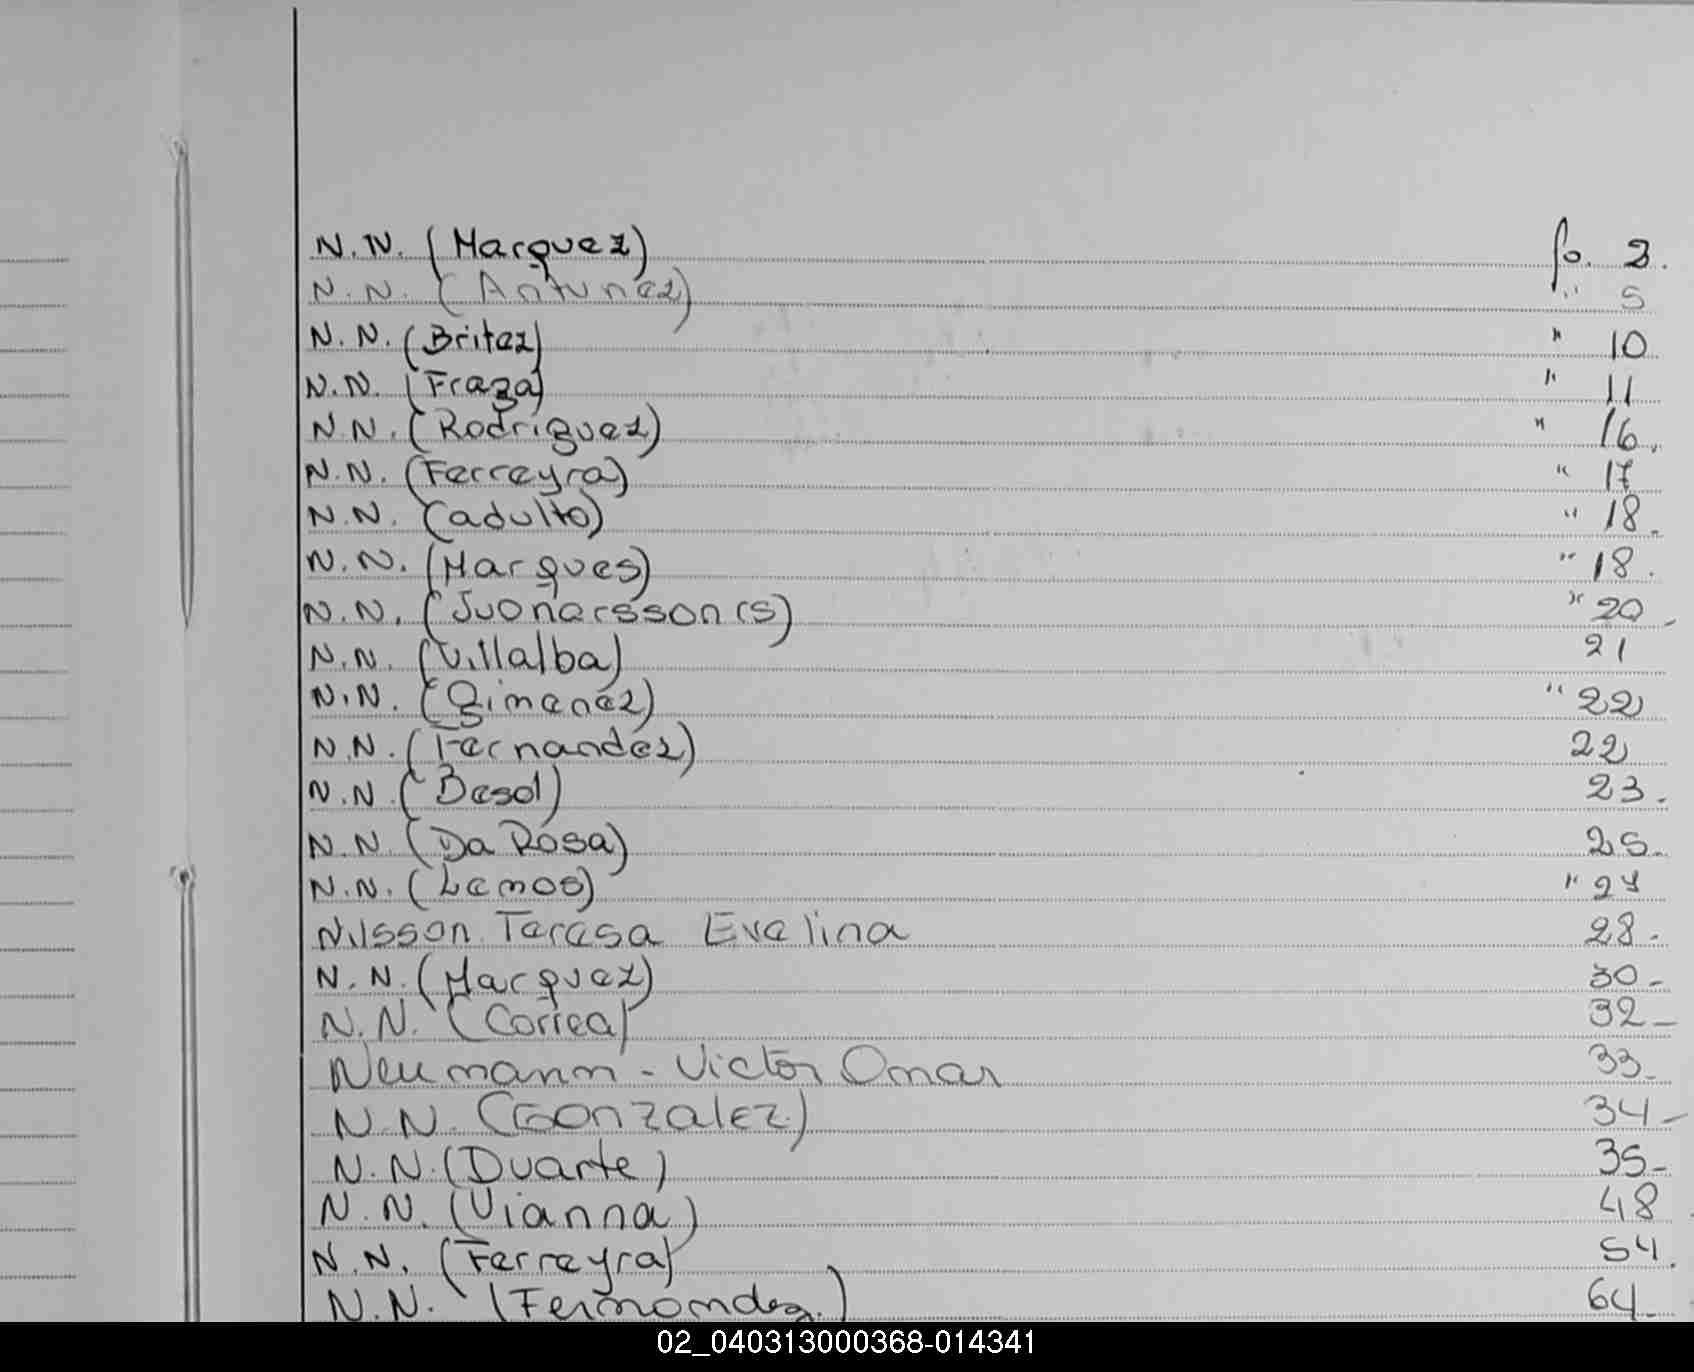 N.N. (Marquez) fo. 2.
N.N. (Antunez) " 5
N.N. (Britez) " 10
N.N. (Fraga) " 11
N.N. (Rodriguez) " 16.
N.N. (Ferreyra) " 17
N.N. (adulto) " 18.
N.N. (Marques) " 18.
N.N. (s) " 20.
N.N. (Villalba) 21
N.N. (Gimenez) " 22
N.N. (Fernandez) 22
N.N. (Besol) 23.
N.N. (Da Rosa) 25.
N.N. (Lemos) " 27
Nilsson Teresa Evelina 28.
N.N. (Marquez) 30-
N.N. (Correa) 32-
Neumann - Victor Omar 33-
N.N. (Gonzalez) 34-
N.N. (Duarte) 35-
N.N. (Vianna) 48
N.N. (Ferreyra) 54.
N.N. (Fernandez.) 64-
02_040313000368-014341